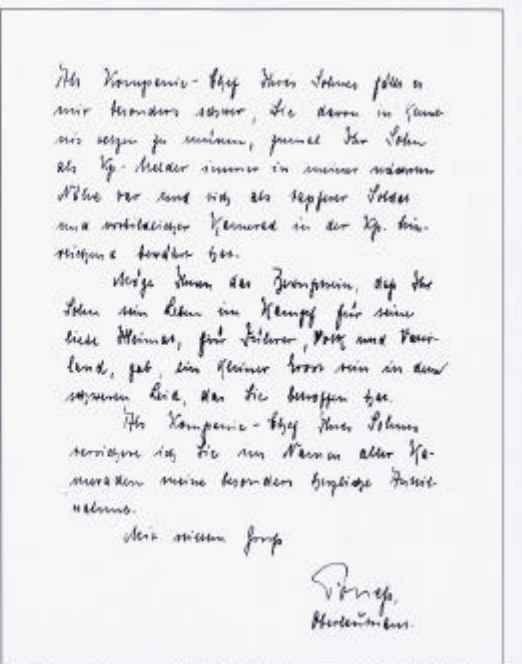 Als Kompanie-Chef Ihres Sohnes fällt es
mir besonders schwer, Sie davon in Kennt-
nis setzen zu müssen, zumal Ihr Sohn
als Kp.-Melder immer in meiner näheren
Nähe war und sich als tapferer Soldat
und vorbildlicher Kamerad in der Kp. hin-
reichend bewährt hat.
Möge Ihnen das Bewußtsein, daß Ihr
Sohn sein Leben im Kampf für seine
liebe Heimat, für Führer, Volk und Vater-
land, gab, ein kleiner Trost sein in dem
schweren Leid, das Sie betroffen hat.
Als Kompanie-Chef Ihres Sohnes
versichere ich Sie im Namen aller Ka-
meraden meine besonders herzliche Anteil-
nahme.
Mit Gruß
Oberleutnant.